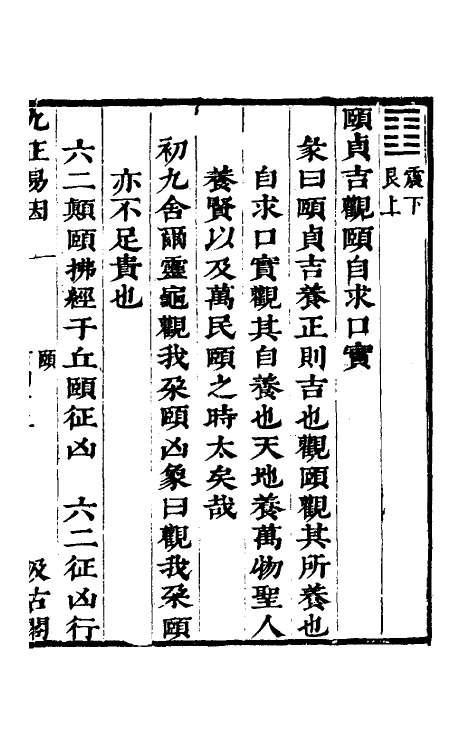 震下
艮上
頤貞吉觀頤自求口實
彖曰頤貞吉養正則吉也觀頤觀其所養也
自求口實觀其自養也天地養萬物聖人
養賢以及萬民頤之時大矣哉
初九舍爾靈龜觀我朶頤凶象曰觀我朶頤
亦不足貴也
六二顛頤拂經于丘頤征凶 六二征凶行
九正易因 頤 汲古閣